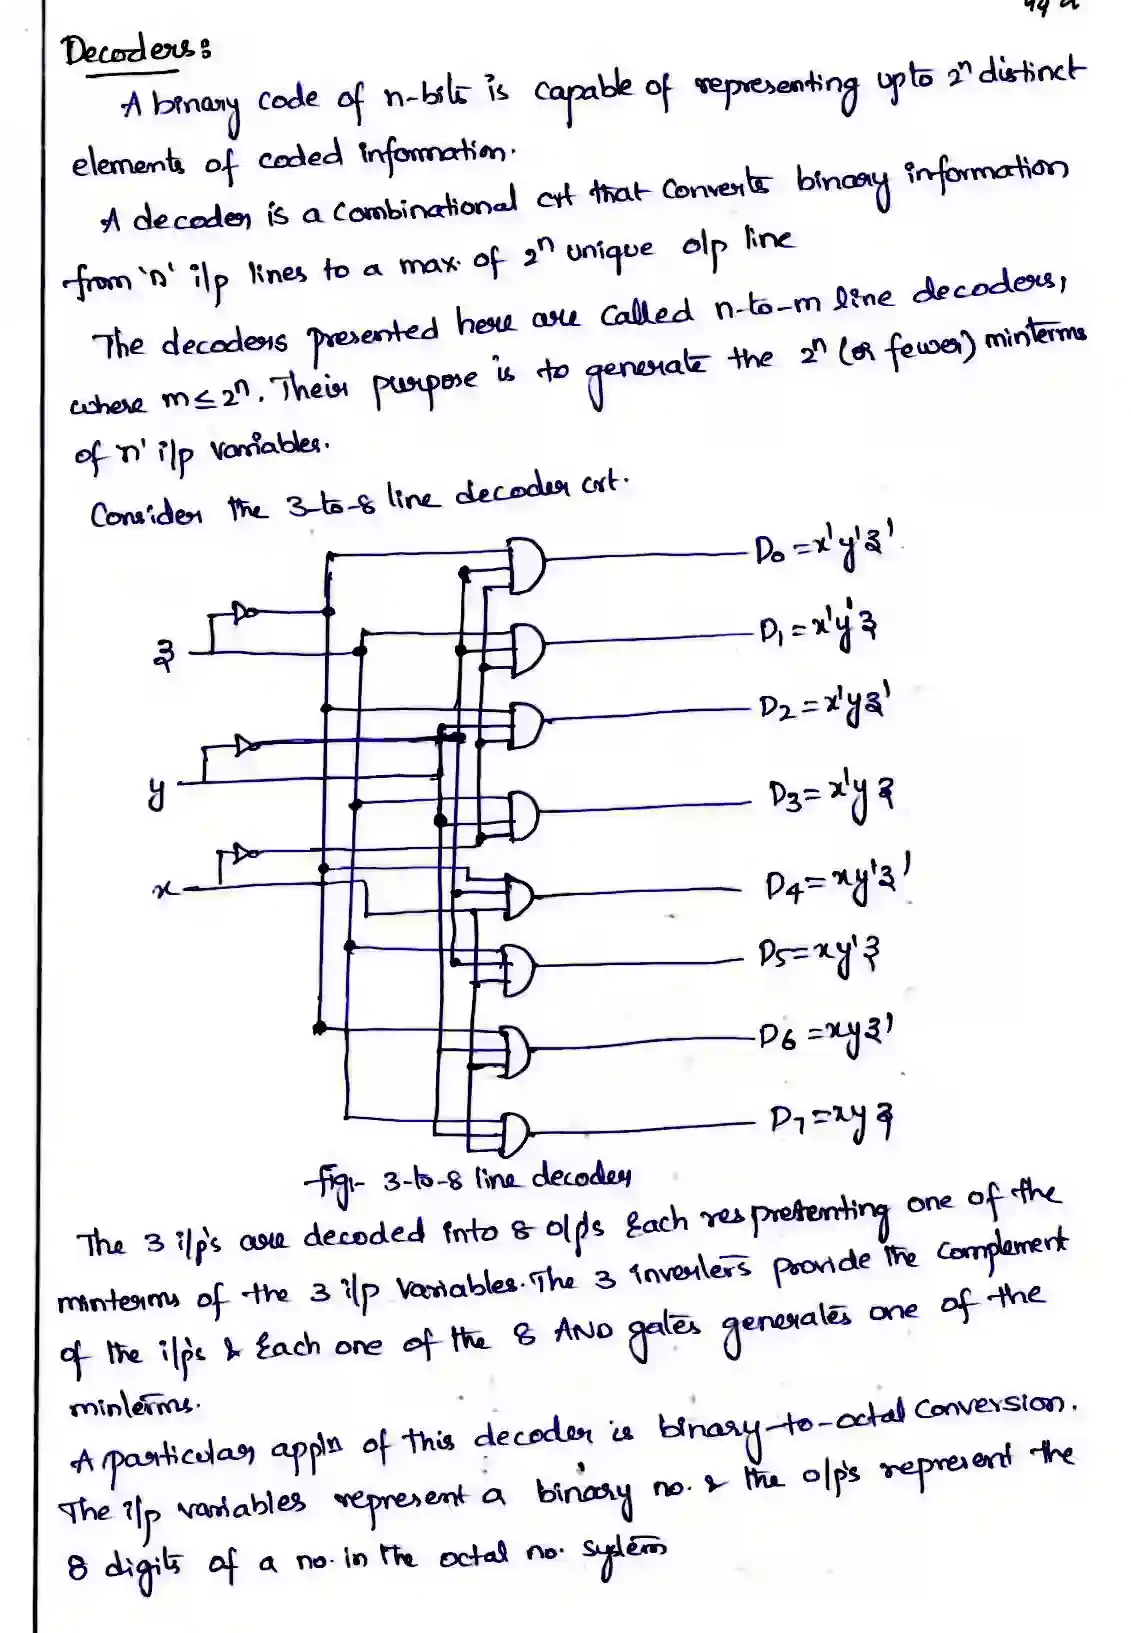 Decoders:
A binary code of n-bits is capable of representing upto 2ⁿ distinct
elements of coded information.
A decoder is a combinational crt that converts binary information
from 'n' i/p lines to a max. of 2ⁿ unique o/p line
The decoders presented here are called n-to-m line decoders,
where m ≤ 2ⁿ. Their purpose is to generate the 2ⁿ (or fewer) minterms
of n' i/p variables.
Consider the 3-to-8 line decoder crt.
D0 = x'y'z'
D1 = x'y'z
z
D2 = x'yz'
y
D3 = x'yz
x
D4 = xy'z'
D5 = xy'z
D6 = xyz'
D7 = xyz
fig:- 3-to-8 line decoder
The 3 i/p's are decoded into 8 o/p's Each respresenting one of the
minterms of the 3 i/p variables. The 3 inverters provide the complement
of the i/p's & Each one of the 8 AND gates generates one of the
minterms.
A particular appln of this decoder is binary-to-octal conversion.
The i/p variables represent a binary no. & the o/p's represent the
8 digits of a no. in the octal no. system